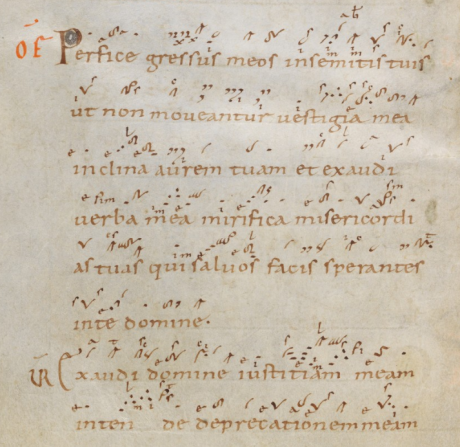 OF Perfice gressus meos in semitis tuis
ut non moveantur vestigia mea
inclina aurem tuam et exaudi
verba mea mirifica misericordi
as tuas qui salvos facis sperantes
in te domine.
VR Exaudi domine iustitiam meam
inten de deprecationem meam